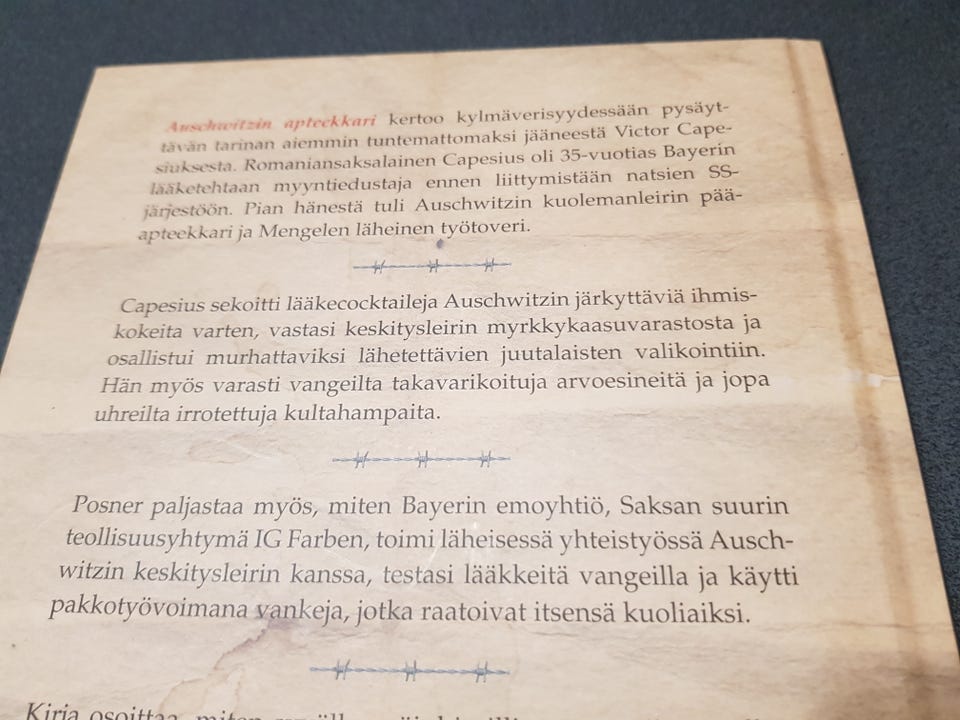 Auschwitzin apteekkari kertoo kylmäverisyydessään pysäyt-
tävän tarinan aiemmin tuntemattomaksi jääneestä Victor Cape-
siuksesta. Romaniansaksalainen Capesius oli 35-vuotias Bayerin
lääketehtaan myyntiedustaja ennen liittymistään natsien SS-
järjestöön. Pian hänestä tuli Auschwitzin kuolemanleirin pää-
apteekkari ja Mengelen läheinen työtoveri.
Capesius sekoitti lääkecocktaileja Auschwitzin järkyttäviä ihmis-
kokeita varten, vastasi keskitysleirin myrkkykaasuvarastosta ja
osallistui murhattaviksi lähetettävien juutalaisten valikointiin.
Hän myös varasti vangeilta takavarikoituja arvoesineitä ja jopa
uhreilta irrotettuja kultahampaita.
Posner paljastaa myös, miten Bayerin emoyhtiö, Saksan suurin
teollisuusyhtymä IG Farben, toimi läheisessä yhteistyössä Ausch-
witzin keskitysleirin kanssa, testasi lääkkeitä vangeilla ja käytti
pakkotyövoimana vankeja, jotka raatoivat itsensä kuoliaiksi.
Kirja osoittaa, miten